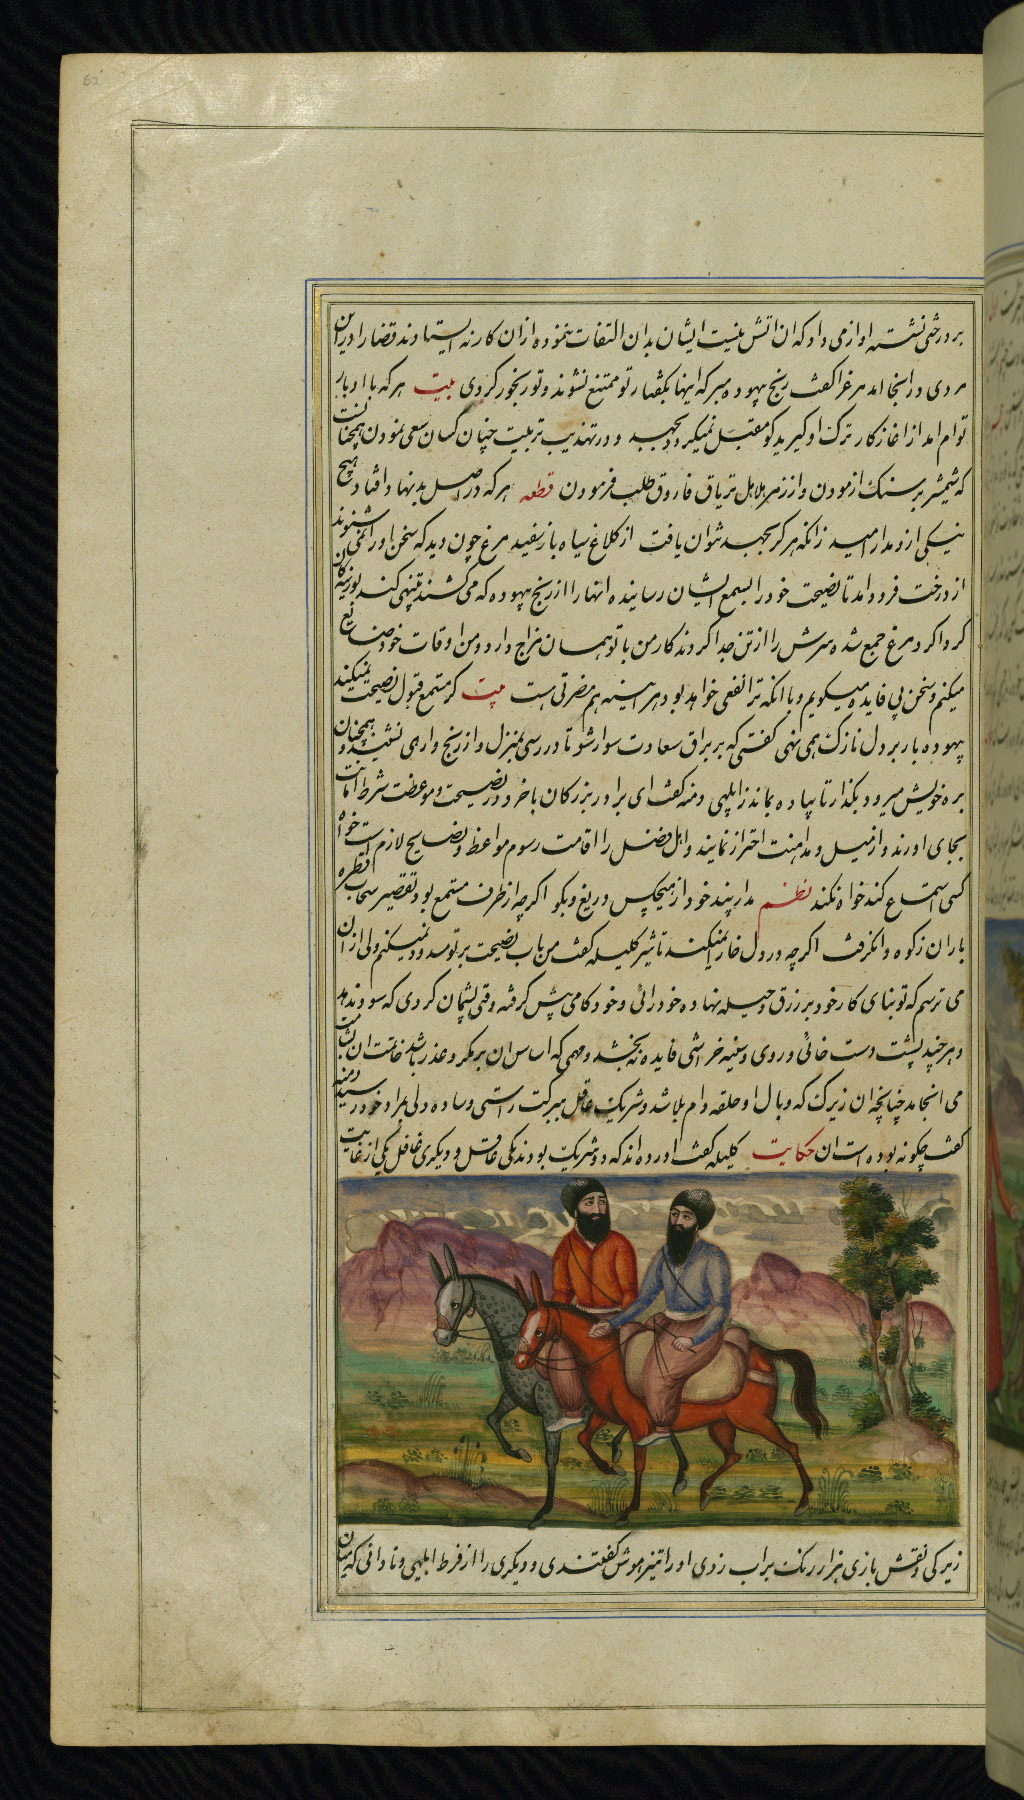 62
بر درختی نشسته اواز می داد که ان اتش نیست ایشان بدان التفات ننموده از ان کار نه ایستادند قضارا درین
مردی در انجا امد مرغرا کفت رنج بیهوده مبر که اینها بکفتار تو ممتنع نشوند و تو رنجور کردی بیت هر که با ادبار
توام امد از اغاز کار ترک او کیرید کو مقبل نمیکردد بجهد و در تهذیب تربیت چنان کسان سعی نمودن همچنانست
که شمشیر بر سنک ازمودن و از زهر هلاهل تریاق فاروق طلب فرمودن قطعه هر که در اصل بد نهاد افتاد هیچ
نیکی از و مدار امید زانکه هرکز بجهد نتوان یافت از کلاغ سیاه باز سفید مرغ چون دید که سخن اورا نمی شنوند
از درخت فرود امد تا نصیحت خود را بسمع ایشان رسانیده انهارا از رنج بیهوده که می کشند تنبهی کند بوزینکان
کرداکرد مرغ جمع شده سرش را از تن جدا کردند کار من با تو همان مزاج دارد و من اوقات خود ضایع
میکنم و سخن بی فایده میکویم و با انکه ترا نفعی خواهد بود هر اینه هم مضرتی است بیت کر مستمع قبول نصیحت نمیکند
بیهوده بار بر دل نازک همی نهی کفتی که بر براق سعادت سوار شو تا در رسی بمنزل و از رنج وارهی نشنید و همچنان
بره خویش میرود بکذار تا پیاده بماند ز ابلهی دمنه کفت ای برادر بزرکان با خرد در نصیحت و موعظت شرط امانت
بجای اورند و از میل و مداهنت احتراز نمایند و اهل فضل را اقامت رسوم مواعظ و نصایح لازم است خواه
کسی استماع کند خواه نکند نظم مدار پند خود از هیچکس دریغ و بکو اکرچه از طرف مستمع بود تقصیر سحاب قطره
باران ز کوه وانکرفت اکرچه در دل خارا نمیکند تاثیر کلیله کفت من باب نصیحت بر تو مسدود نمیکنم ولی از ان
می ترسم که تو بنای کار خود بر زرق و حیله نهاده خود رائی و خود کامی پیش کرفته وقتی پشیمان کردی که سود ندهد
و هر چند پشت دست خائی و روی و سینه خراشی فایده نبخشد و مهمی که اساس ان بر مکر و غدر باشد خاتمت ان بشامت
می انجامد چنانچه ان زیرک که وبال او حلقه دام بلا شد و شریک غافل ببرکت راستی و ساده دلی بمراد خود رسید دمنه
کفت چکونه بوده است ان حکایت کلیله کفت اورده اند که دو شریک بودند یکی عاقل و دیکری غافل یکی از غایت
زیرکی نقش بازی هزار رنک بر اب زدی اورا تیز هوش کفتندی و دیکری را از فرط ابلهی و نادانی که میان